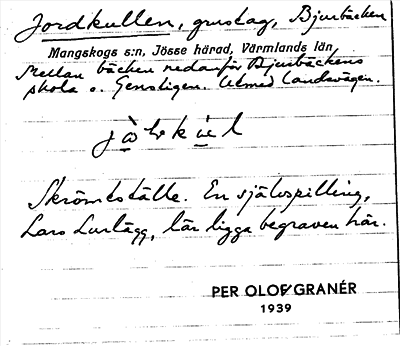 Jordkullen, grustag, Bjurbäcken
Mangskogs s:n, Jösse härad, Värmlands län
Mellan bäcken nedanför Bjurbäckens
skola o. Genstigen. Utmed landsvägen.
Skrömtställe. En självspilling,
Lars Lurlägg, lär ligga begraven här.
PER OLOF GRANÉR
1939